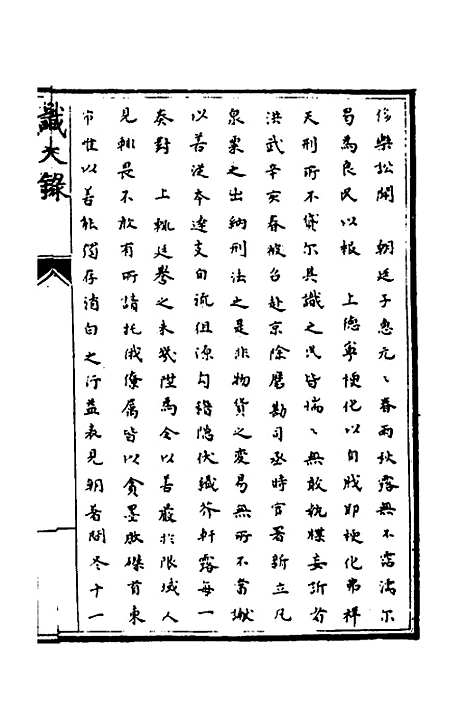 僚柴松聞　朝廷子惠元元春雨秋露無不霑濡尔
曷為良民以報　上德寧梗化以自賊耶梗化弗祥
天刑所不貸尔其識之汎皆惴惴無敢執牒妄訴者
洪武辛亥春被召赴京除磨勘司丞時官署新立凡
泉粟之出納刑法之是非物貨之變易無所不當
以善從本達支自流徂源勾稽隱伏纖芥軒露每一
奏對　上輒廷譽之未幾陞為令以善嚴於限域人
見輒畏不敢有所請托俄僚屬皆以貪墨敗磔首東
市惟以善能獨存消白之行益表見朝著間冬十一
識大錄